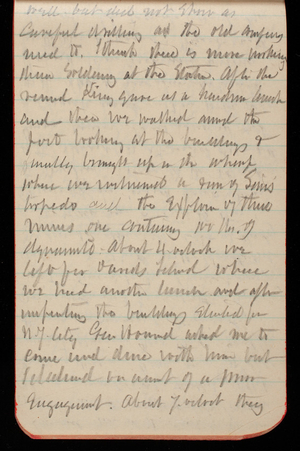 well but did not show as
careful drilling as the old confers
used to. I think there is more working
than soldiering at the Station. After the
review King gave us a handsome lunch
and then we walked around the
post looking at the buildings &
finally brought up on the wharf
where we witnessed a run of Sims
torpedo and the explosion of three
mines one containing 100 lbs. of
dynamite. About 4 oclock we
left for Davids Island where
we had another lunch and after
inspecting the buildings started for
N.Y. City. Gen Howard asked me to
come and dine with him but
I declined on account of a prior
engagement. About 7 oclock they